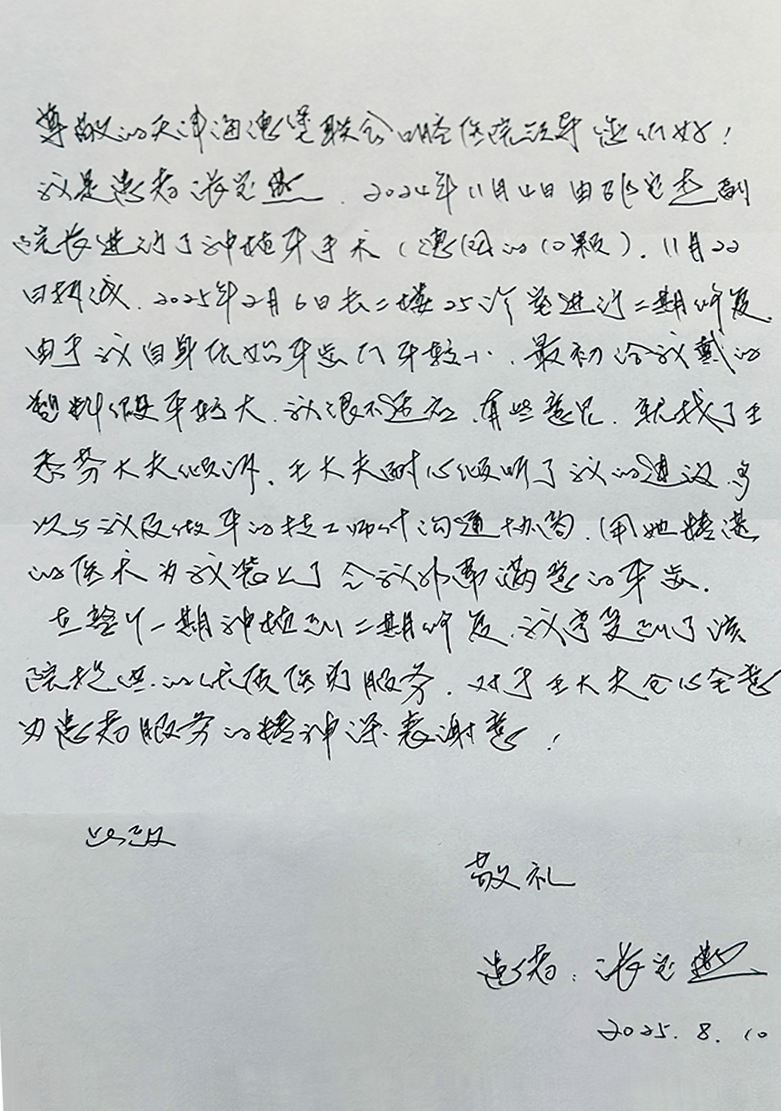 尊敬的天津海德堡联合口腔医院领导您们好！
我是患者张宝燕．2024年11月4日由邵宝杰副
院长进行了种植牙手术（德国的10颗）．11月22
日拆线．2025年2月6日去二楼25诊室进行二期修复
由于我自身原始牙齿门牙较小．最初给我戴的
塑料假牙较大．我很不适应．有些意见．就找了王
大夫倾诉．王大夫耐心倾听了我的建议．多
次与我及做牙的技工师付沟通协商．用她精湛
的医术为我装上了令我非常满意的牙齿．
在整个一期种植到二期修复．我享受到了该
院提供的优质医疗服务．对于王大夫全心全意
为患者服务的精神深表谢意！
此致
敬礼
患者：张宝燕
2025.8.10